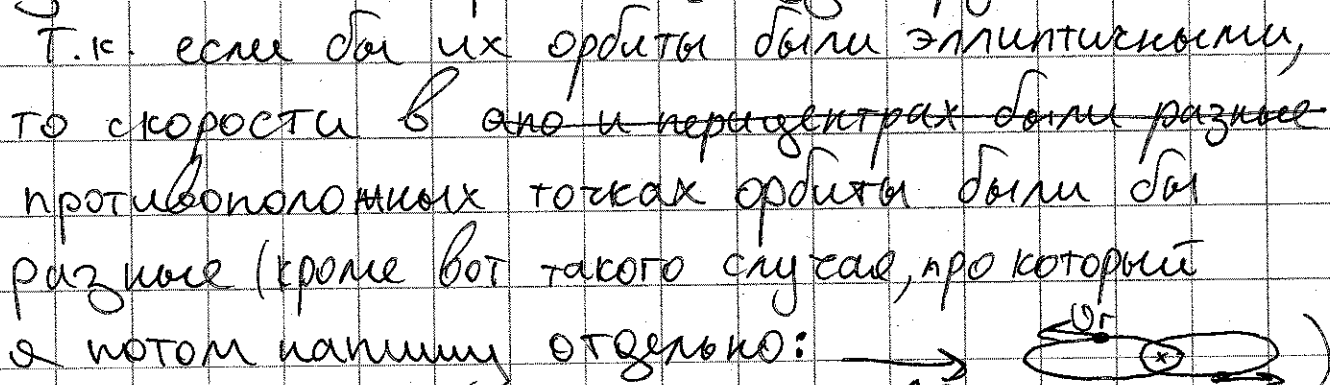 Т.к. если бы их орбиты были эллиптичными,
то скорости в апо и перицентрах были разные
противоположных точках орбиты были бы
разные (кроме вот такого случая, про который
я потом напишу отдельно: → )